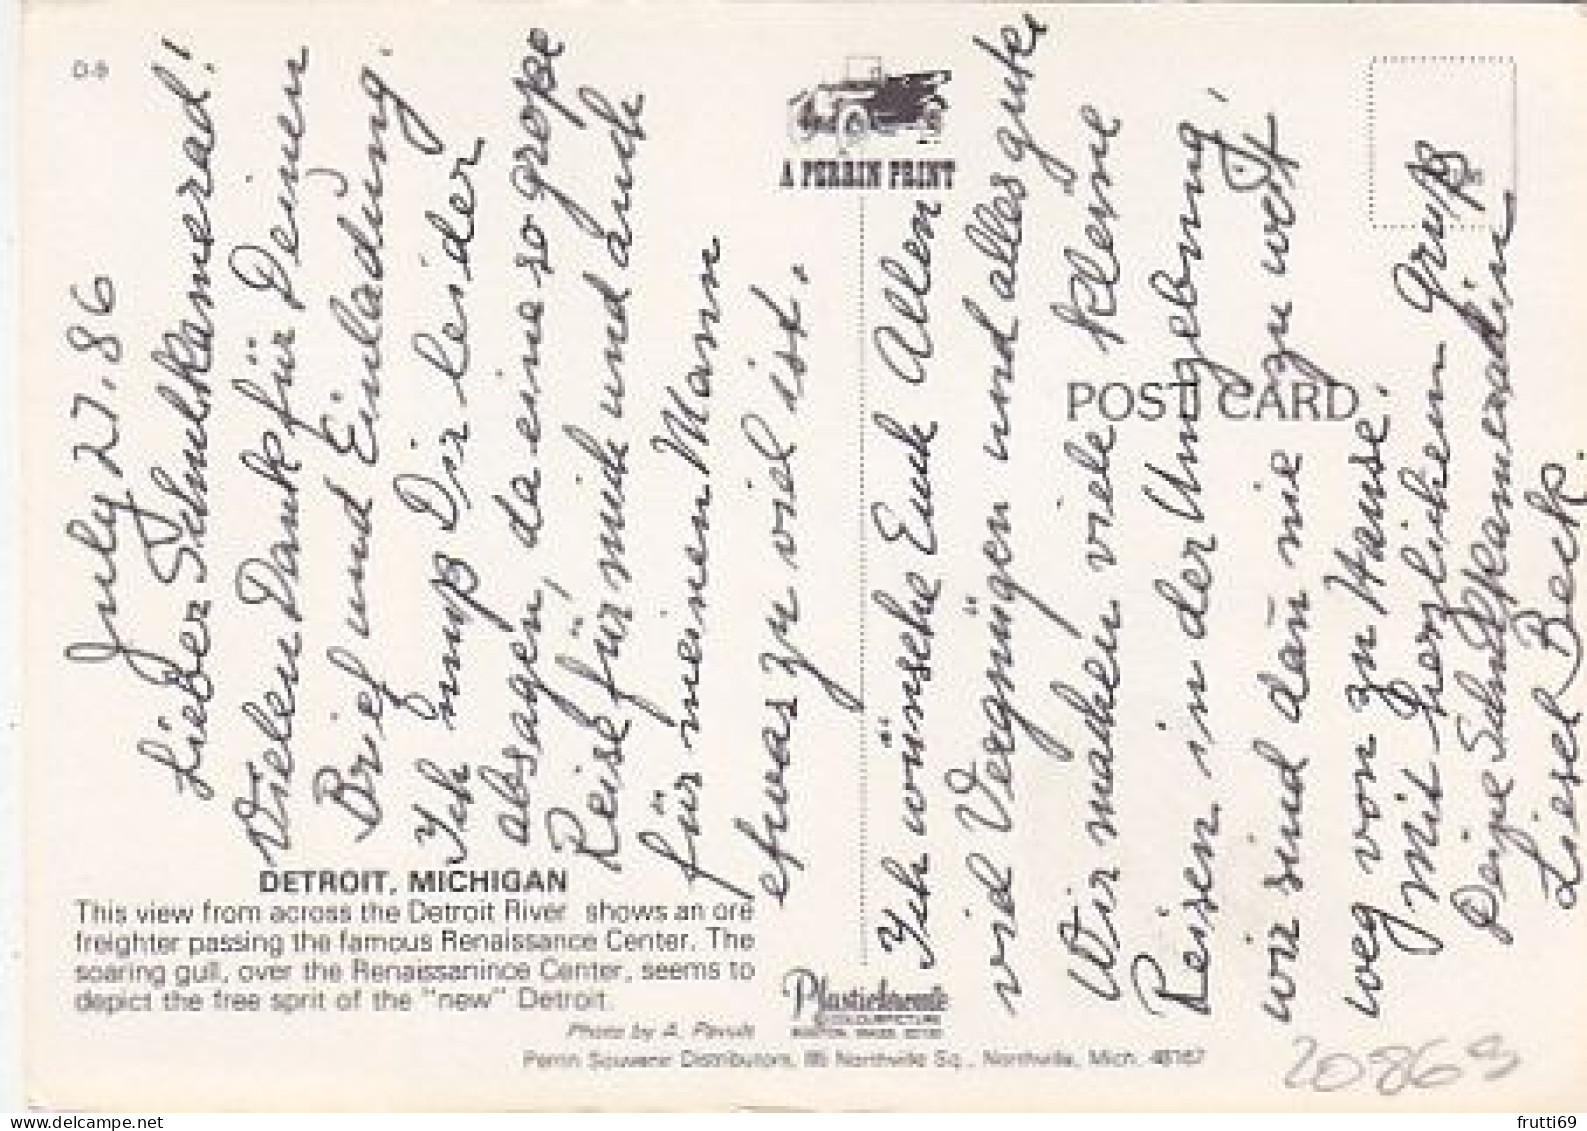 D-9
July 27. 86
Lieber Schulkamerad!
Vielen Dank für Deinen
Brief und Einladung.
Ich muß Dir leider
absagen, da eine so große
Reise für mich und auch
für meinen Mann
etwas zu viel ist.
Ich wünsche Euch Allen
viel Vergnügen und alles gute.
Wir machen viele kleine
Reisen in der Umgebung,
wir sind dañ nie zu weit
weg von zu Hause.
Mit herzlichem Gruß
Deine Schulkameradin
Liesel Beck.
A PERRIN PRINT
POST CARD
DETROIT, MICHIGAN
This view from across the Detroit River shows an ore
freighter passing the famous Renaissance Center. The
soaring gull, over the Renaissanince Center, seems to
depict the free sprit of the "new" Detroit.
Photo by A.
Plastichrome
COLOURPICTURE
BOSTON, MASS. 02130
Perrin Souvenir Distributors, 115 Northville Sq., Northville, Mich. 48167
20869
delcampe.net
frutti69